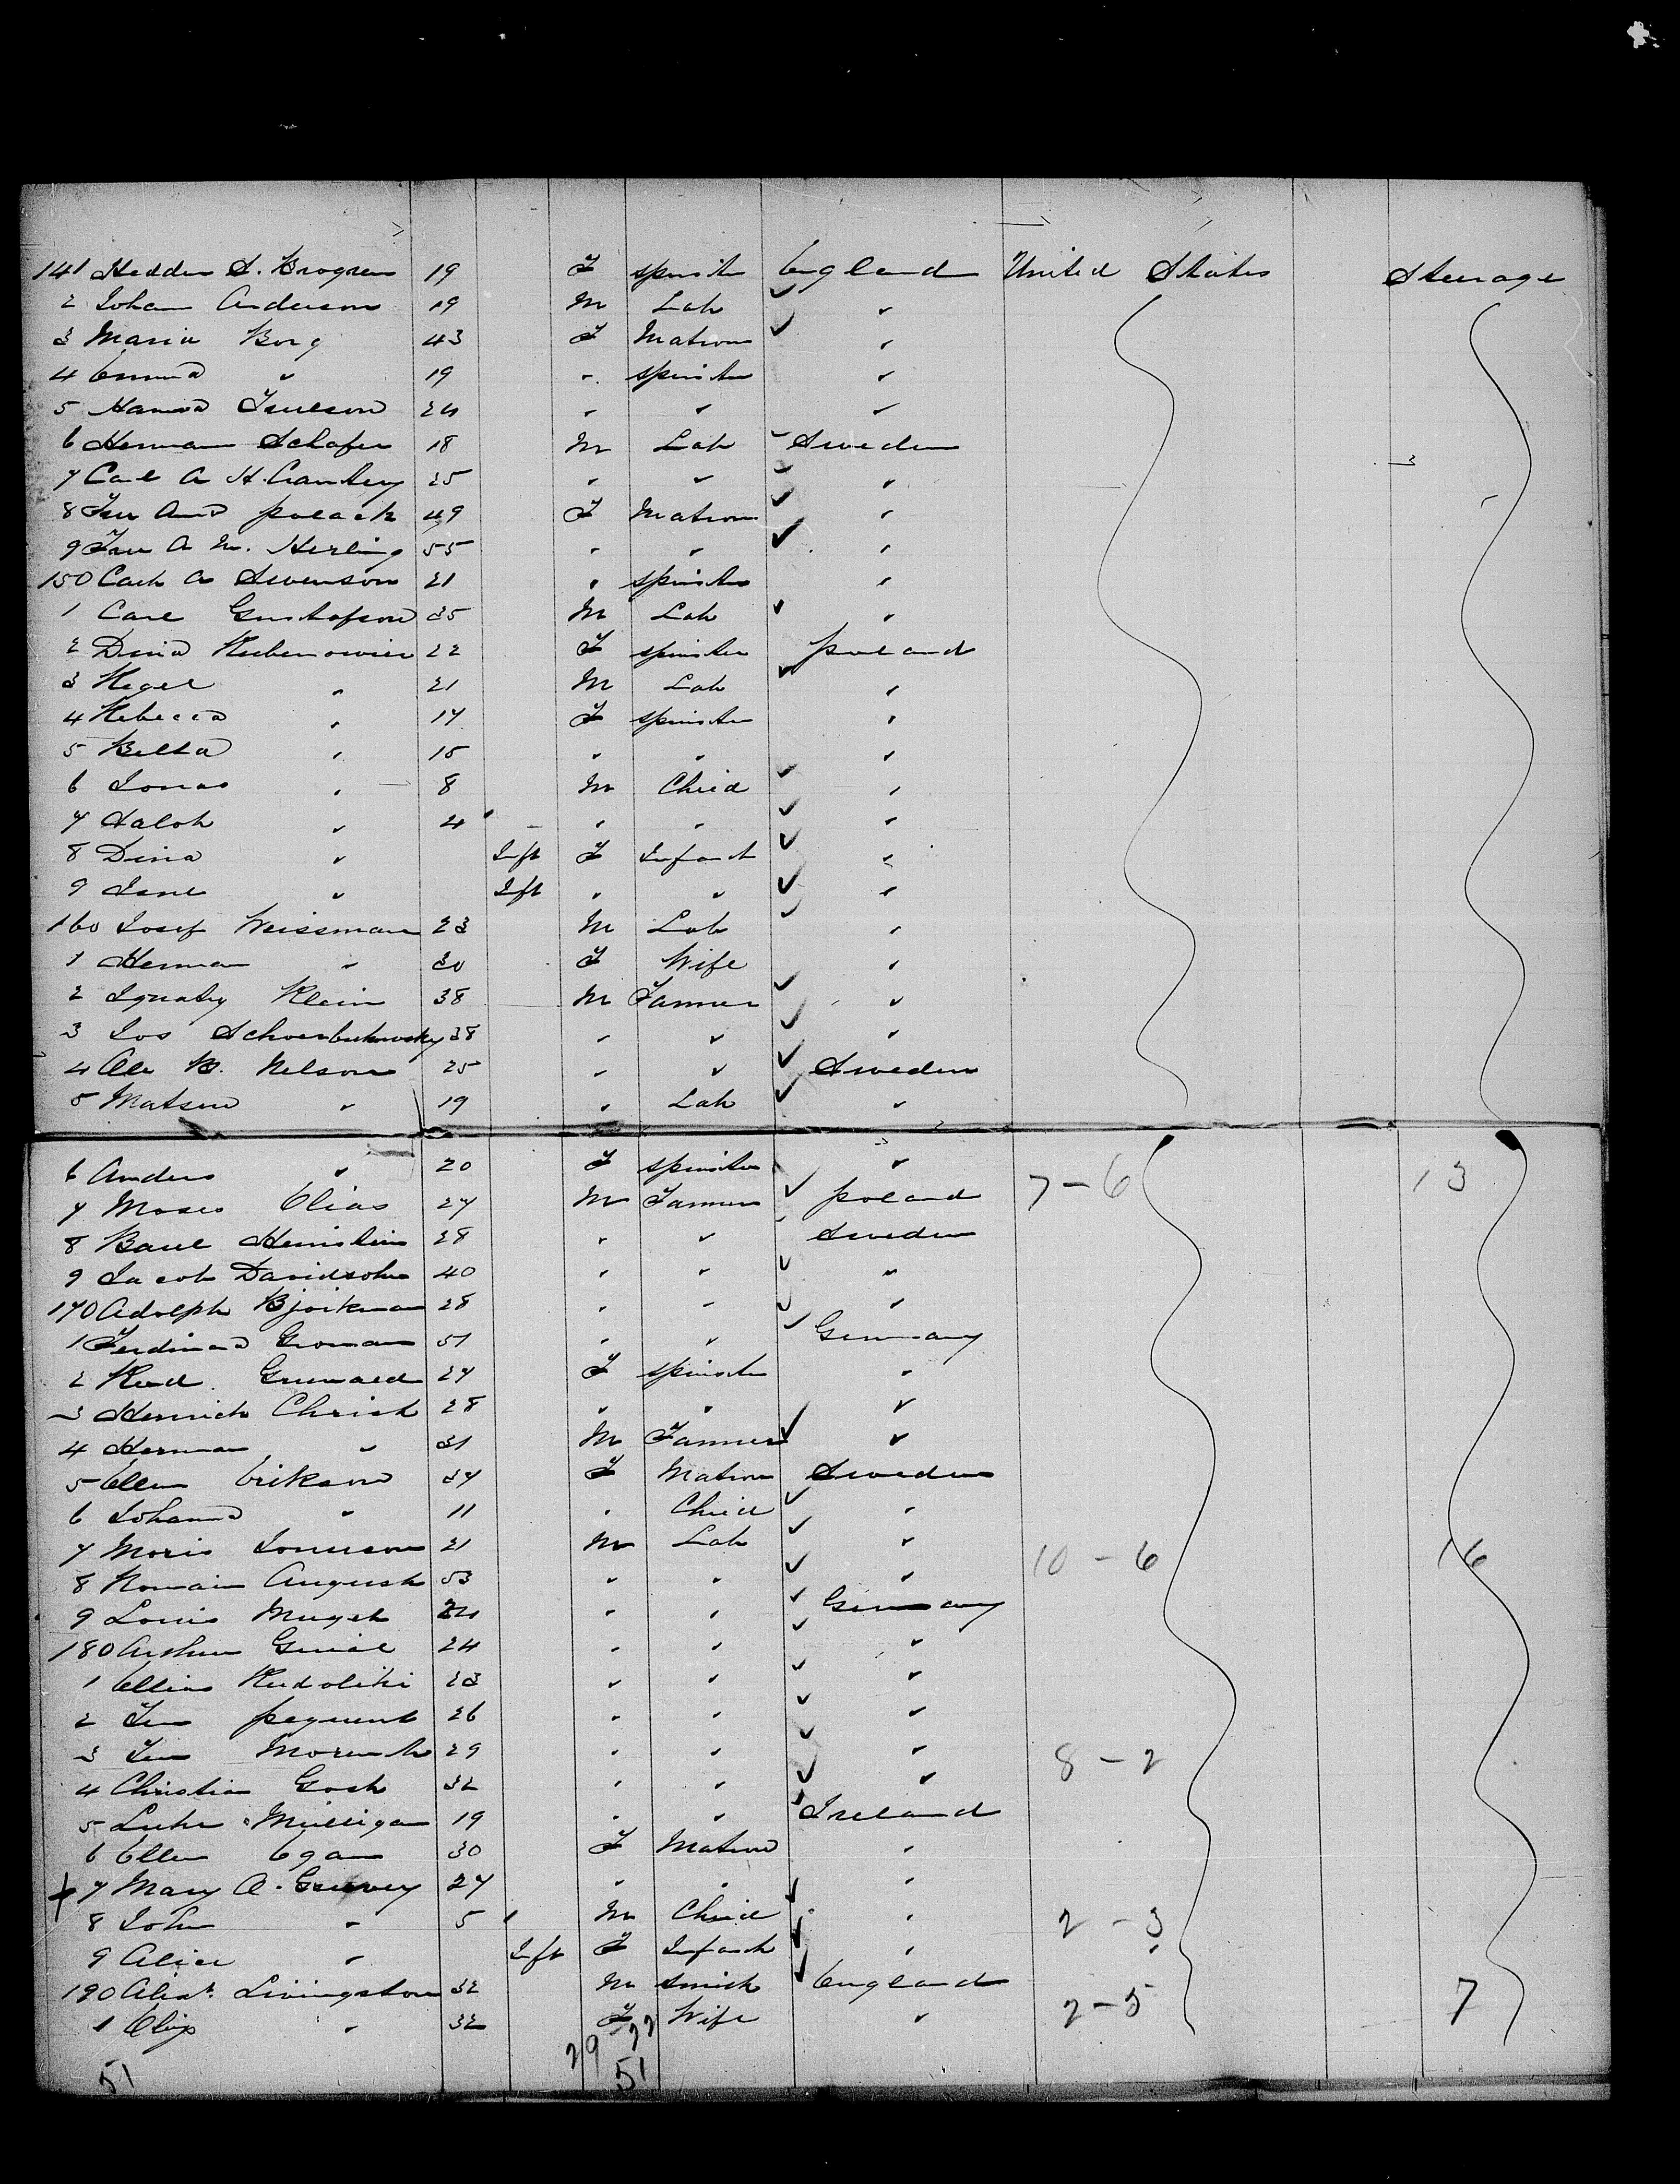 141 Hedda S. Brogren 19 F spinster England United States Steerage
2 Johan Anderson 19 M Lab "
3 Maria Borg 43 F Matron "
4 Emma " 19 " spinster "
5 Hanna 24 " " "
6 Herman Schafer 18 M Lab Sweden
7 Carl A H. 25 " " "
8 Fru And polack 49 F Matron "
9 Fru A M. Herling 55 " " "
150 Cath A Swenson 21 " spinster "
1 Carl Gustafson 35 M Lab "
2 Dina Rubenowier 22 F spinster poland
3 Regel " 21 M Lab "
4 Rebecca " 17 F spinster "
5 Betta " 15 " " "
6 Jonas " 8 M Child "
7 Saloh " 4 " " "
8 Dina " Inft F Infant "
9 Jane " Ift " " "
160 Josef Weissman 23 M Lab "
1 Herman " 30 F Wife "
2 Ignatzy Klein 38 M Farmer "
3 Jos 38 " " "
4 Ole B. Nelson 25 " " Sweden
5 Matsen " 19 " Lab "
6 Anders " 20 F spinster "
7 Moses Elias 27 M Farmer poland 7-6 13
8 28 " " Sweden
9 Jacob Davidsohn 40 " " "
170 Adolph Bjorkman 28 " " "
1 Ferdinand Groman 51 " " Germany
2 Grunwald 27 F spinster "
3 Henrich Christ 28 " " "
4 Herman " 31 M Farmer "
5 Ellen Erikson 37 F Matron Sweden
6 Johanna " 11 " Child "
7 Moris 21 M Lab " 10-6 16
8 Romain August 53 " " "
9 Louis 24 " " Germany
180 Arthur 24 " " "
1 23 " " "
2 26 " " "
3 29 " " " 8-2
4 Christian Gosh 32 " " "
5 Luke Milligan 19 " " Ireland
6 Ellen Egan 30 F Matron "
7 Mary A. 27 " " "
8 John " 5 M Child " 2-3
9 Alice " Inft F Infant "
190 Alexr. Livingston 32 M smith England
1 Eliz " 32 F Wife " 2-5 7
29 22
51 51